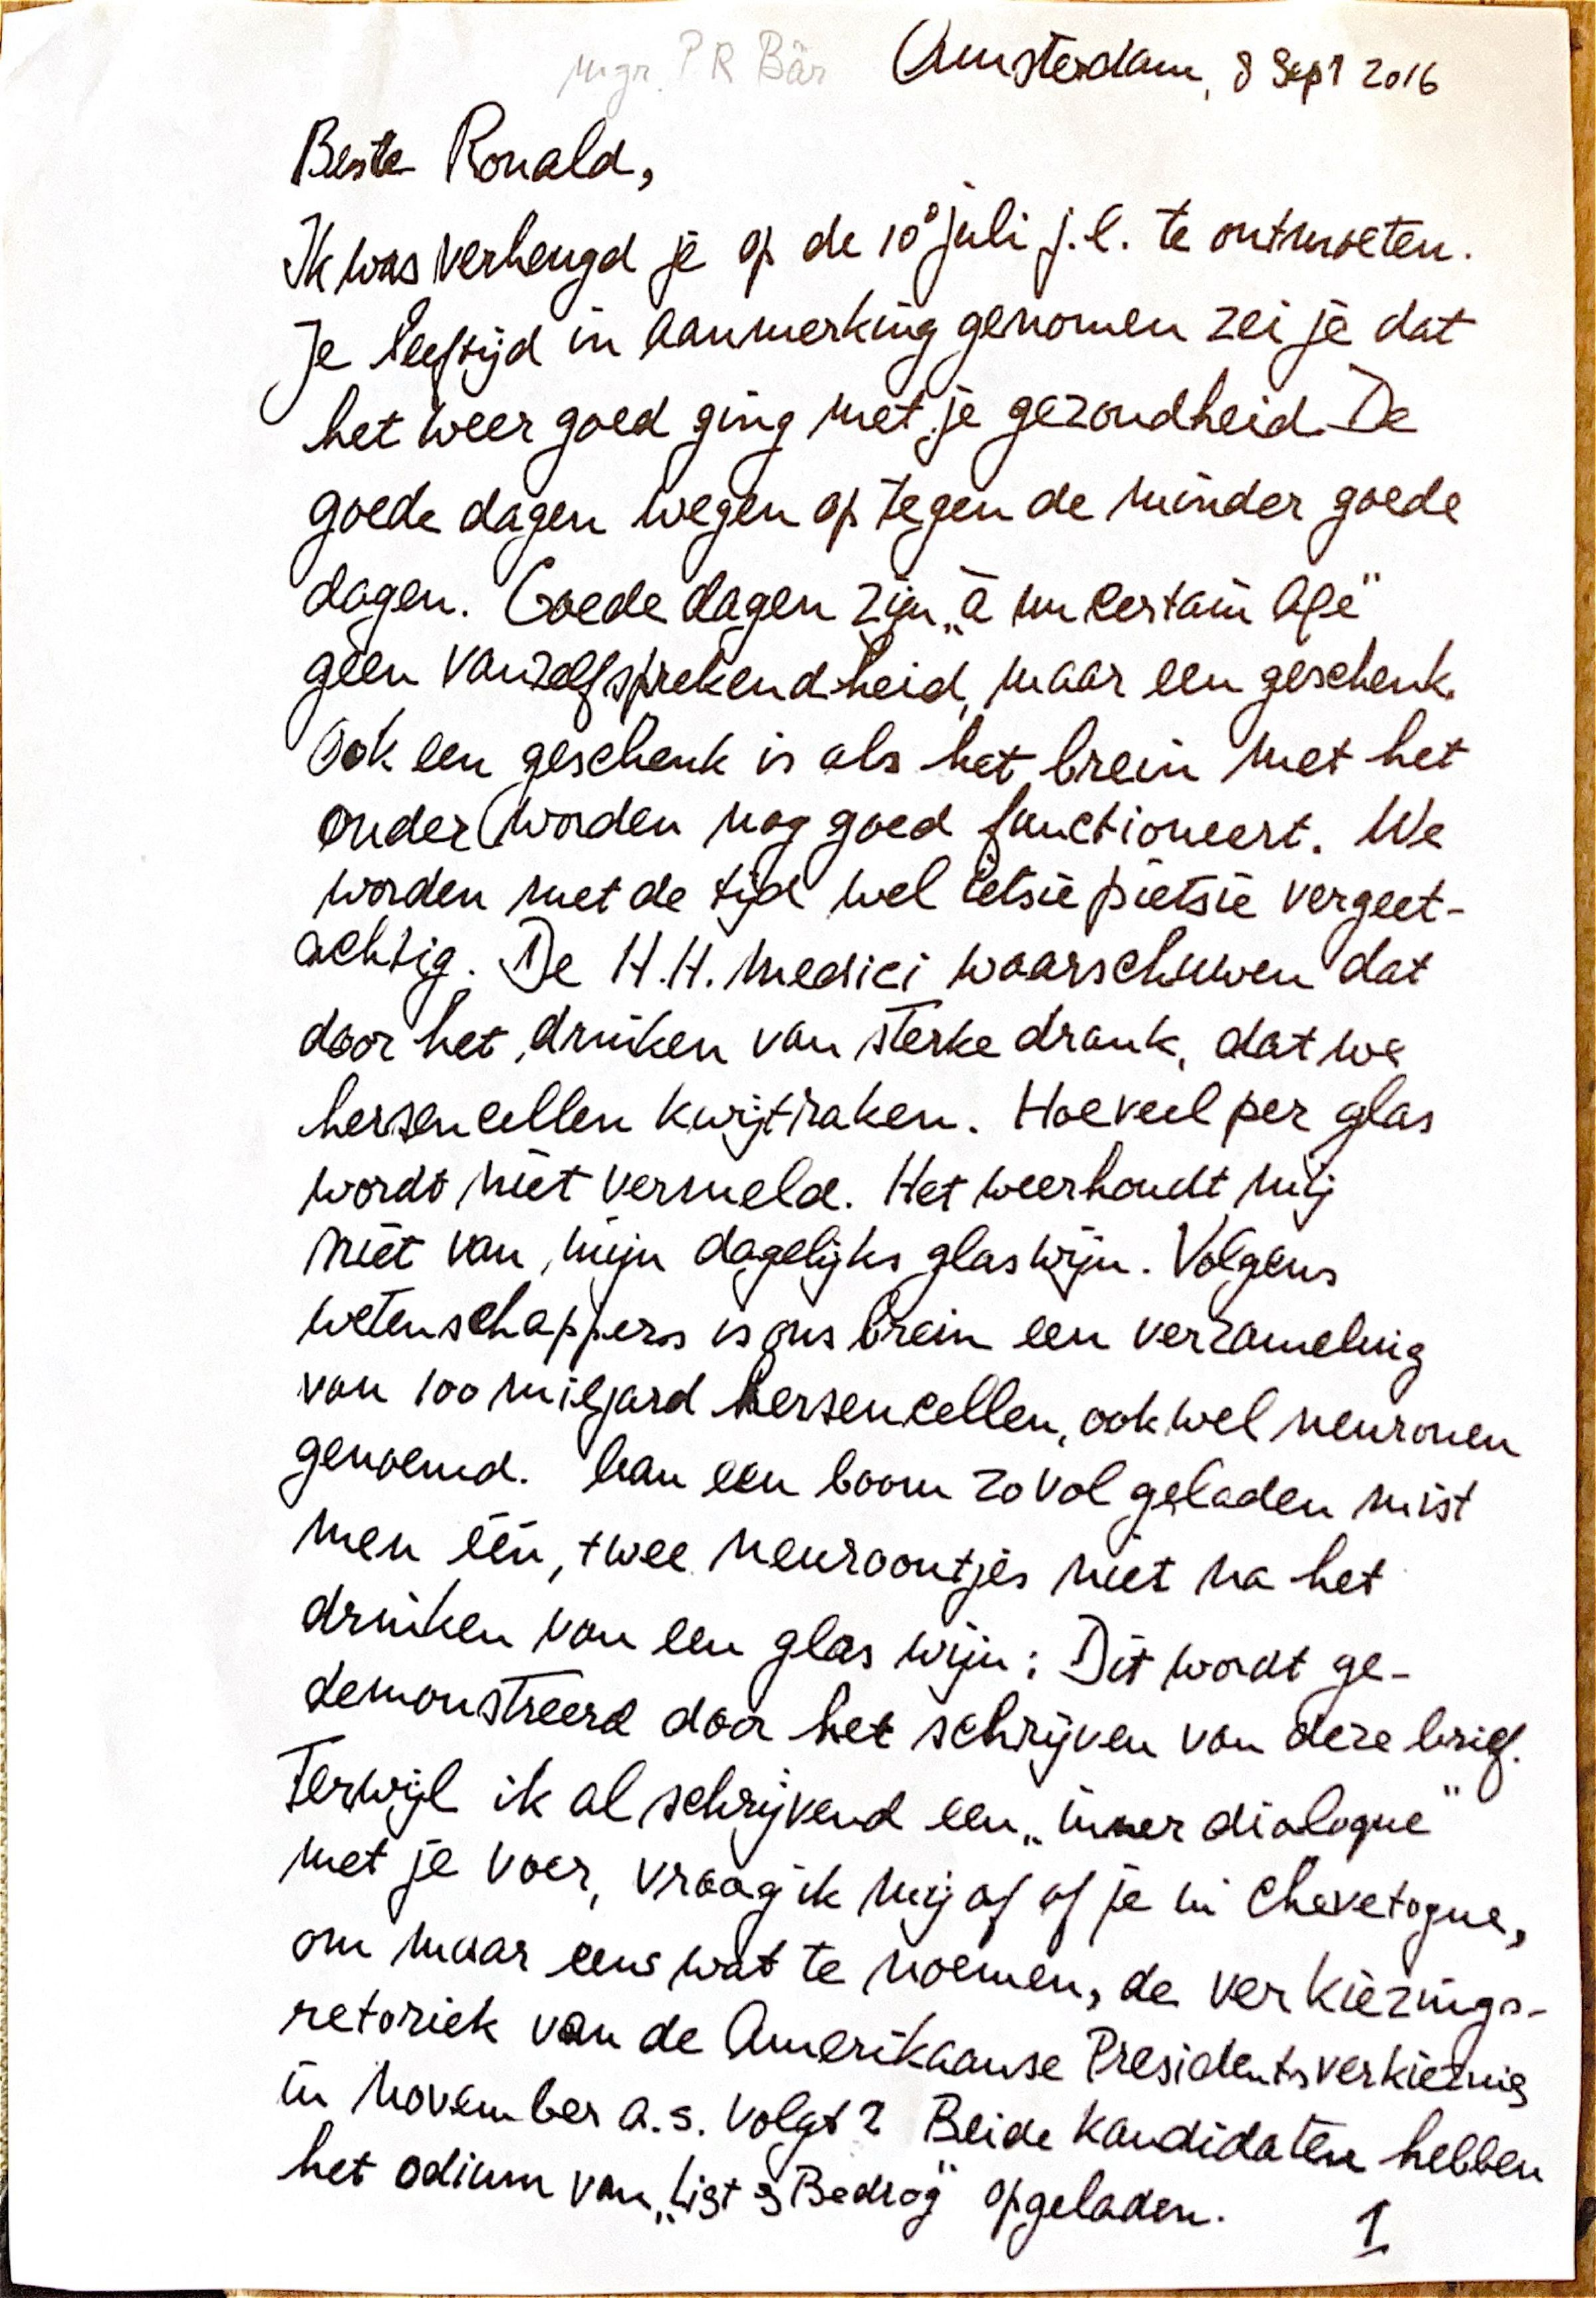 mgr. P R Bär
Amsterdam, 8 Sept 2016
Beste Ronald,
Ik was verheugd je op de 10e juli j.l. te ontmoeten.
Je leeftijd in aanmerking genomen zei je dat
het weer goed ging met je gezondheid. De
goede dagen wegen op tegen de minder goede
dagen. Goede dagen zijn „à un certain age"
geen vanzelfsprekendheid, maar een geschenk.
Ook een geschenk is als het brein met het
ouder worden nog goed functioneert. We
worden met de tijd wel ietsie pietsie vergeet-
achtig. De H.H. medici waarschuwen dat
door het drinken van sterke drank, dat we
hersencellen kwijtraken. Hoeveel per glas
wordt niet vermeld. Het weerhoudt mij
niet van mijn dagelijks glas wijn. Volgens
wetenschappers is ons brein een verzameling
van 100 miljard hersencellen, ook wel neuronen
genoemd. Aan een boom zo vol geladen mist
men één, twee neuroontjes niet na het
drinken van een glas wijn: Dit wordt ge-
demonstreerd door het schrijven van deze brief.
Terwijl ik al schrijvend een „inner dialogue"
met je voer, vraag ik mij af of je in Chevetogne,
om maar eens wat te noemen, de verkiezings-
retoriek van de Amerikaanse Presidentsverkiezing
in november a.s. volgt? Beide kandidaten hebben
het odium van „List & Bedrog" opgeladen.
1